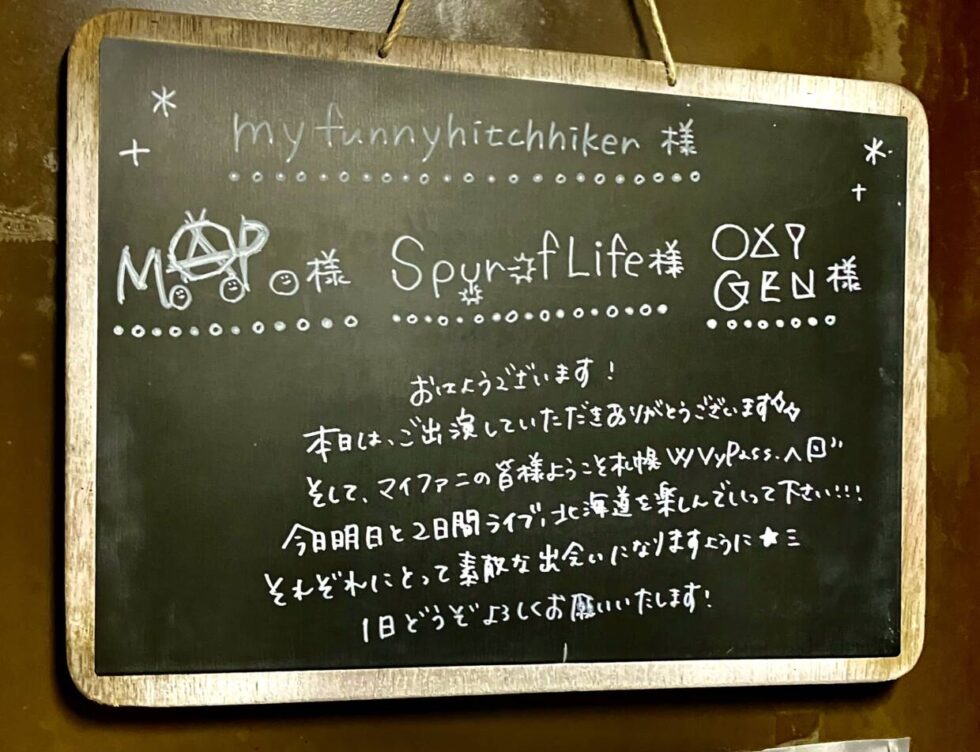 myfunnyhitchhiker 様
M.A.P. 様
Spur of Life 様
OXYGEN 様
おはようございます!
本日は、ご出演していただきありがとうございます
そして、マイファニの皆様ようこそ札幌 VyPass.へ
今日明日と2日間ライブ、北海道を楽しんでいって下さい!!!
それぞれにとって素敵な出会いになりますように★ミ
1日どうぞよろしくお願いいたします!